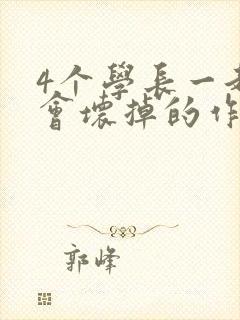 4个學長一
會壞掉的作
郭峰